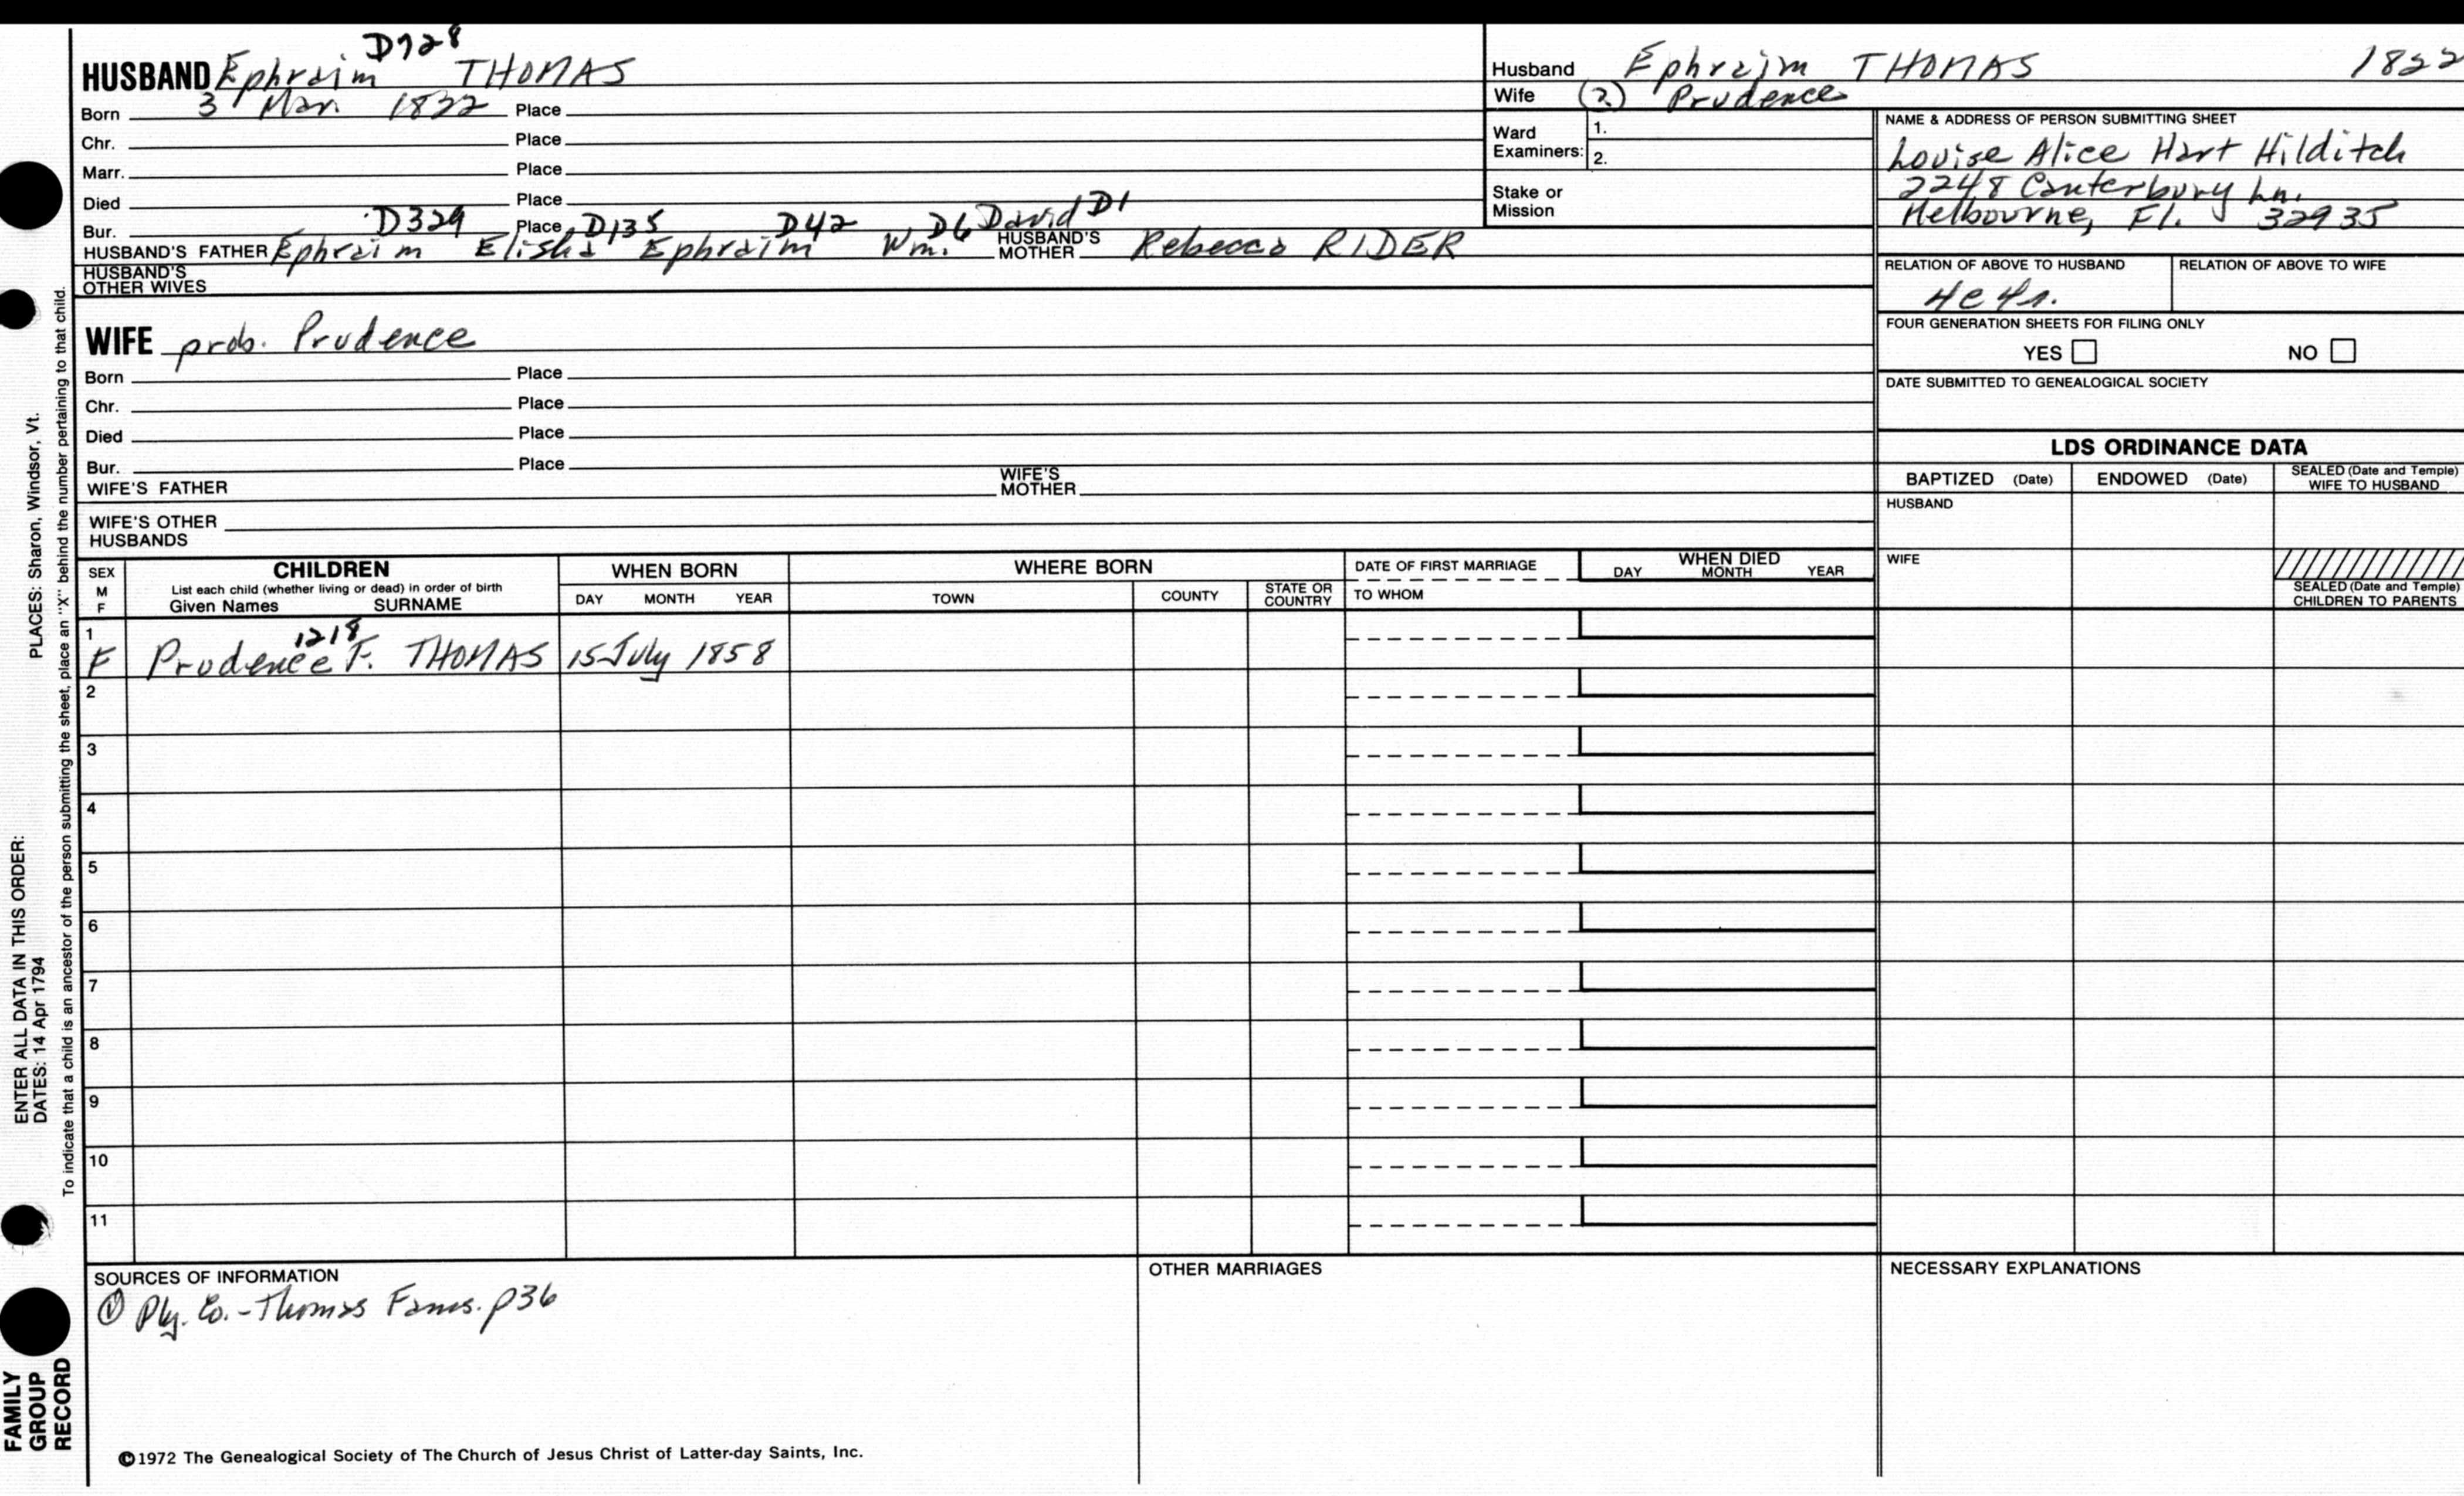 D728
HUSBAND Ephraim THOMAS
Born 3 Mar. 1822 Place
Chr. Place
Marr. Place
Died Place
Bur. Place
D329 D135 D42 D6 David D1
HUSBAND'S FATHER Ephraim Elisha Ephraim Wm. HUSBAND'S MOTHER Rebecca RIDER
HUSBAND'S OTHER WIVES
WIFE prob. Prudence
Born Place
Chr. Place
Died Place
Bur. Place
WIFE'S FATHER WIFE'S MOTHER
WIFE'S OTHER HUSBANDS
Husband Ephraim THOMAS 1822
Wife (?) Prudence
Ward Examiners: 1.
2.
Stake or Mission
NAME & ADDRESS OF PERSON SUBMITTING SHEET
Louise Alice Hart Hilditch
2248 Canterbury Ln.
Melbourne, Fl. 32935
RELATION OF ABOVE TO HUSBAND RELATION OF ABOVE TO WIFE
4c4r.
FOUR GENERATION SHEETS FOR FILING ONLY
YES NO
DATE SUBMITTED TO GENEALOGICAL SOCIETY
LDS ORDINANCE DATA
BAPTIZED (Date) ENDOWED (Date) SEALED (Date and Temple) WIFE TO HUSBAND
HUSBAND
WIFE
SEALED (Date and Temple) CHILDREN TO PARENTS
SEX M F CHILDREN WHEN BORN WHERE BORN DATE OF FIRST MARRIAGE WHEN DIED
List each child (whether living or dead) in order of birth
Given Names SURNAME DAY MONTH YEAR TOWN COUNTY STATE OR COUNTRY TO WHOM DAY MONTH YEAR
1218
1 F Prudence F. THOMAS 15 July 1858
2
3
4
5
6
7
8
9
10
11
SOURCES OF INFORMATION OTHER MARRIAGES NECESSARY EXPLANATIONS
① Ply. Co. - Thomas Fams. p36
©1972 The Genealogical Society of The Church of Jesus Christ of Latter-day Saints, Inc.
FAMILY GROUP RECORD
ENTER ALL DATA IN THIS ORDER:
DATES: 14 Apr 1794
PLACES: Sharon, Windsor, Vt.
To indicate that a child is an ancestor of the person submitting the sheet, place an "X" behind the number pertaining to that child.